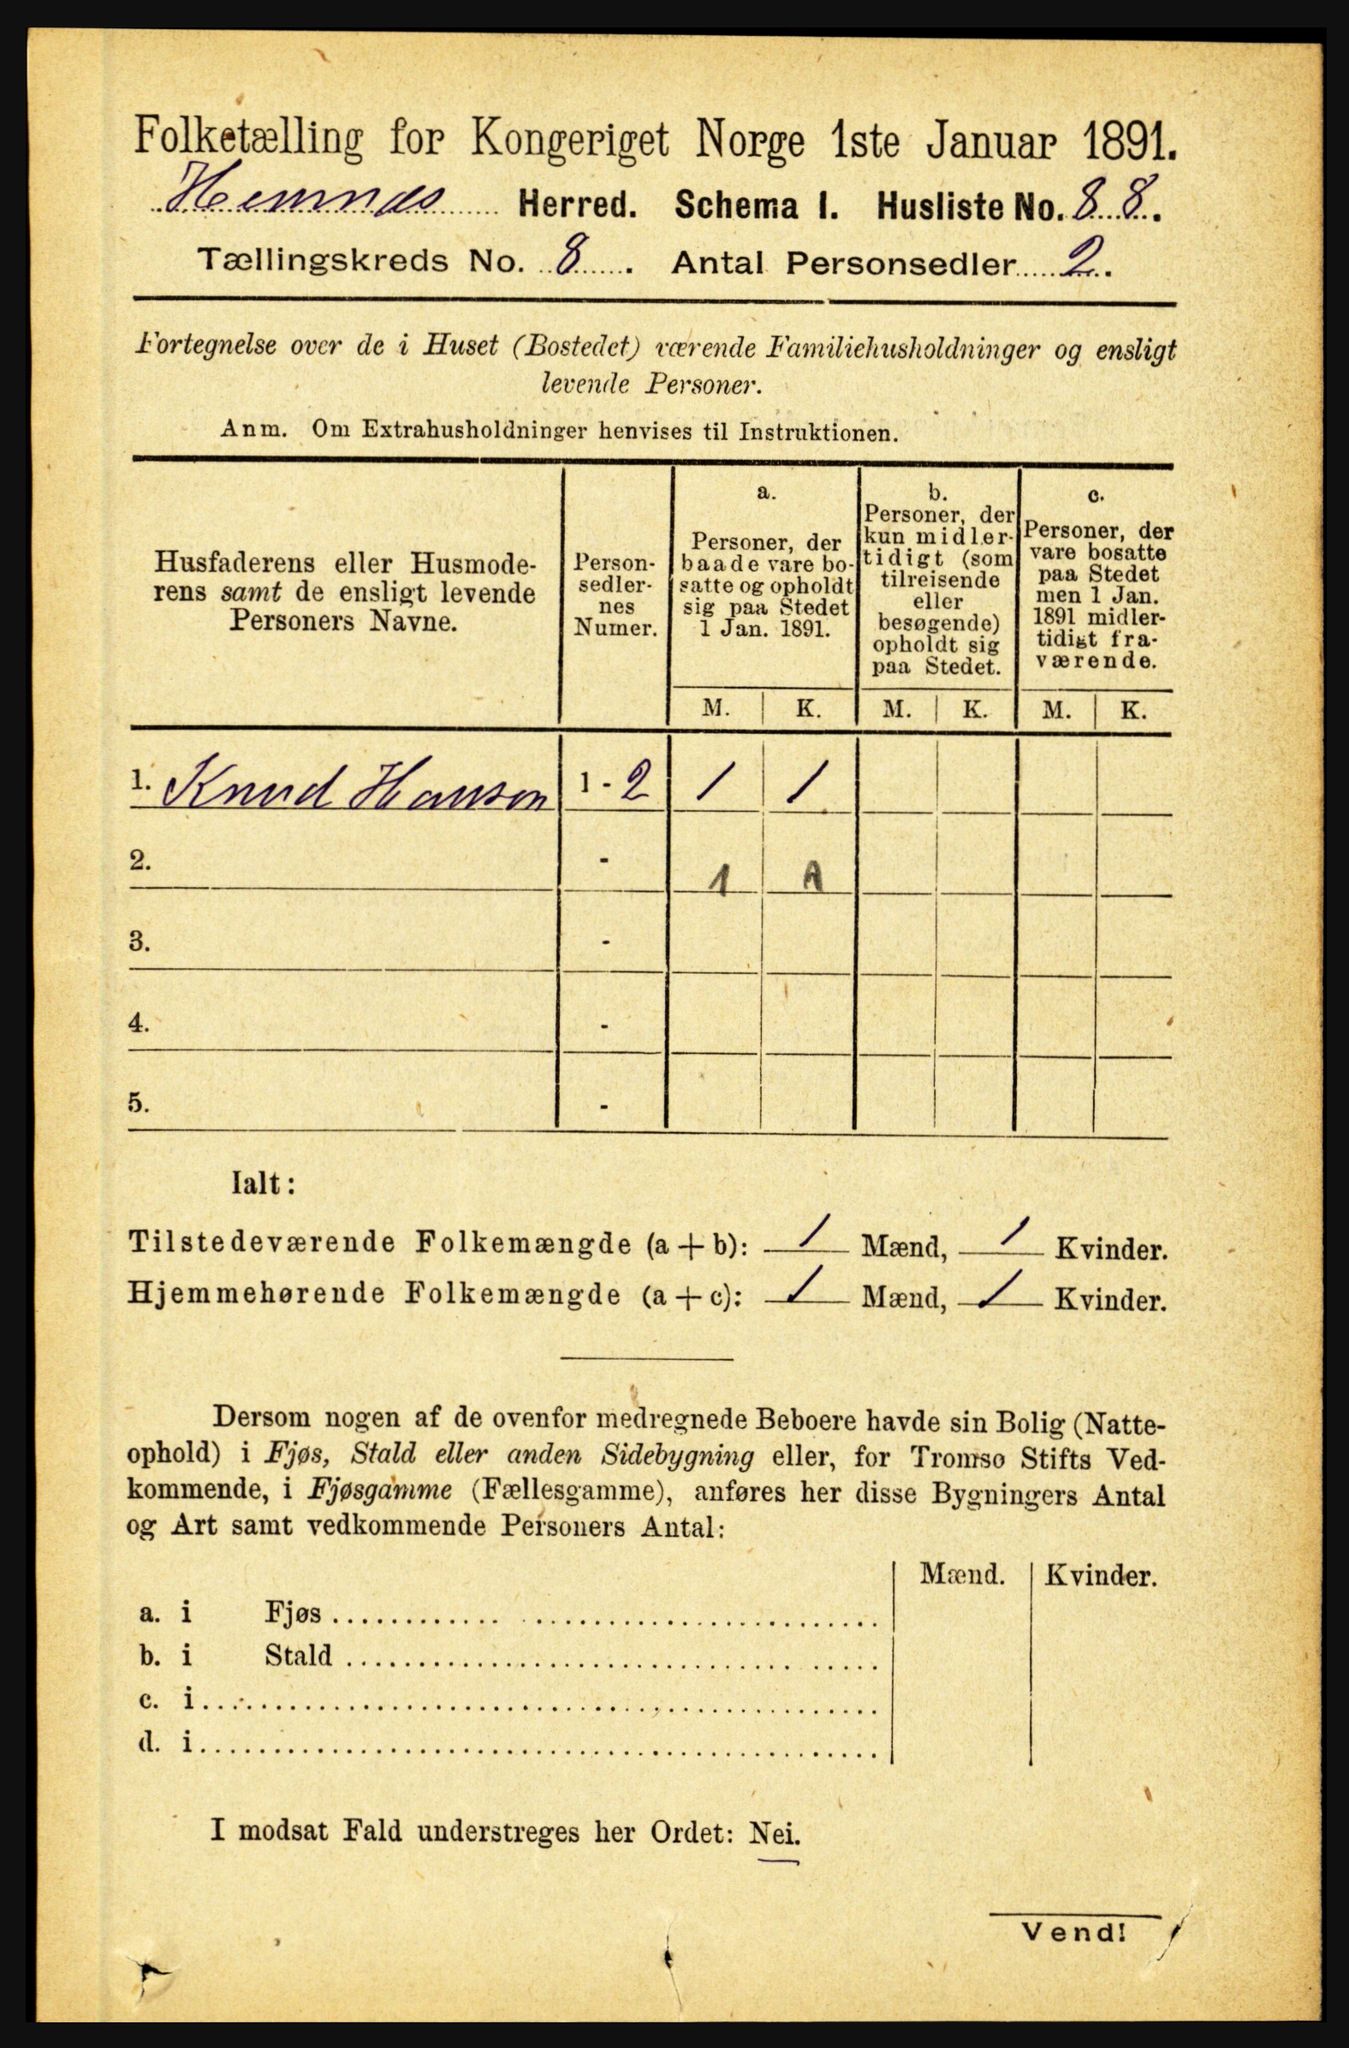 Folketælling for Kongeriget Norge 1ste Januar 1891.
Hemnæs Herred. Schema I. Husliste No. 88.
Tællingskreds No. 8. Antal Personsedler 2.
Fortegnelse over de i Huset (Bostedet) værende Familiehusholdninger og ensligt
levende Personer.
Anm. Om Extrahusholdninger henvises til Instruktionen.
Husfaderens eller Husmode-
rens samt de ensligt levende
Personers Navne.
Person-
sedler-
nes
Numer.
a.
Personer, der
baade vare bo-
satte og opholdt
sig paa Stedet
1 Jan. 1891.
b.
Personer, der
kun midler-
tidigt (som
tilreisende
eller
besøgende)
opholdt sig
paa Stedet.
c.
Personer, der
vare bosatte
paa Stedet
men 1 Jan.
1891 midler-
tidigt fra-
værende.
M. K. M. K. M. K.
1. Knud Hansen 1 - 2 1 1
2. - 1 1
3. -
4. -
5. -
Ialt:
Tilstedeværende Folkemængde (a + b): 1 Mænd, 1 Kvinder.
Hjemmehørende Folkemængde (a + c): 1 Mænd, 1 Kvinder.
Dersom nogen af de ovenfor medregnede Beboere havde sin Bolig (Natte-
ophold) i Fjøs, Stald eller anden Sidebygning eller, for Tromsø Stifts Ved-
kommende, i Fjøsgamme (Fællesgamme), anføres her disse Bygningers Antal
og Art samt vedkommende Personers Antal:
Mænd. Kvinder.
a. i Fjøs
b. i Stald
c. i
d. i
I modsat Fald understreges her Ordet: Nei.
Vend!